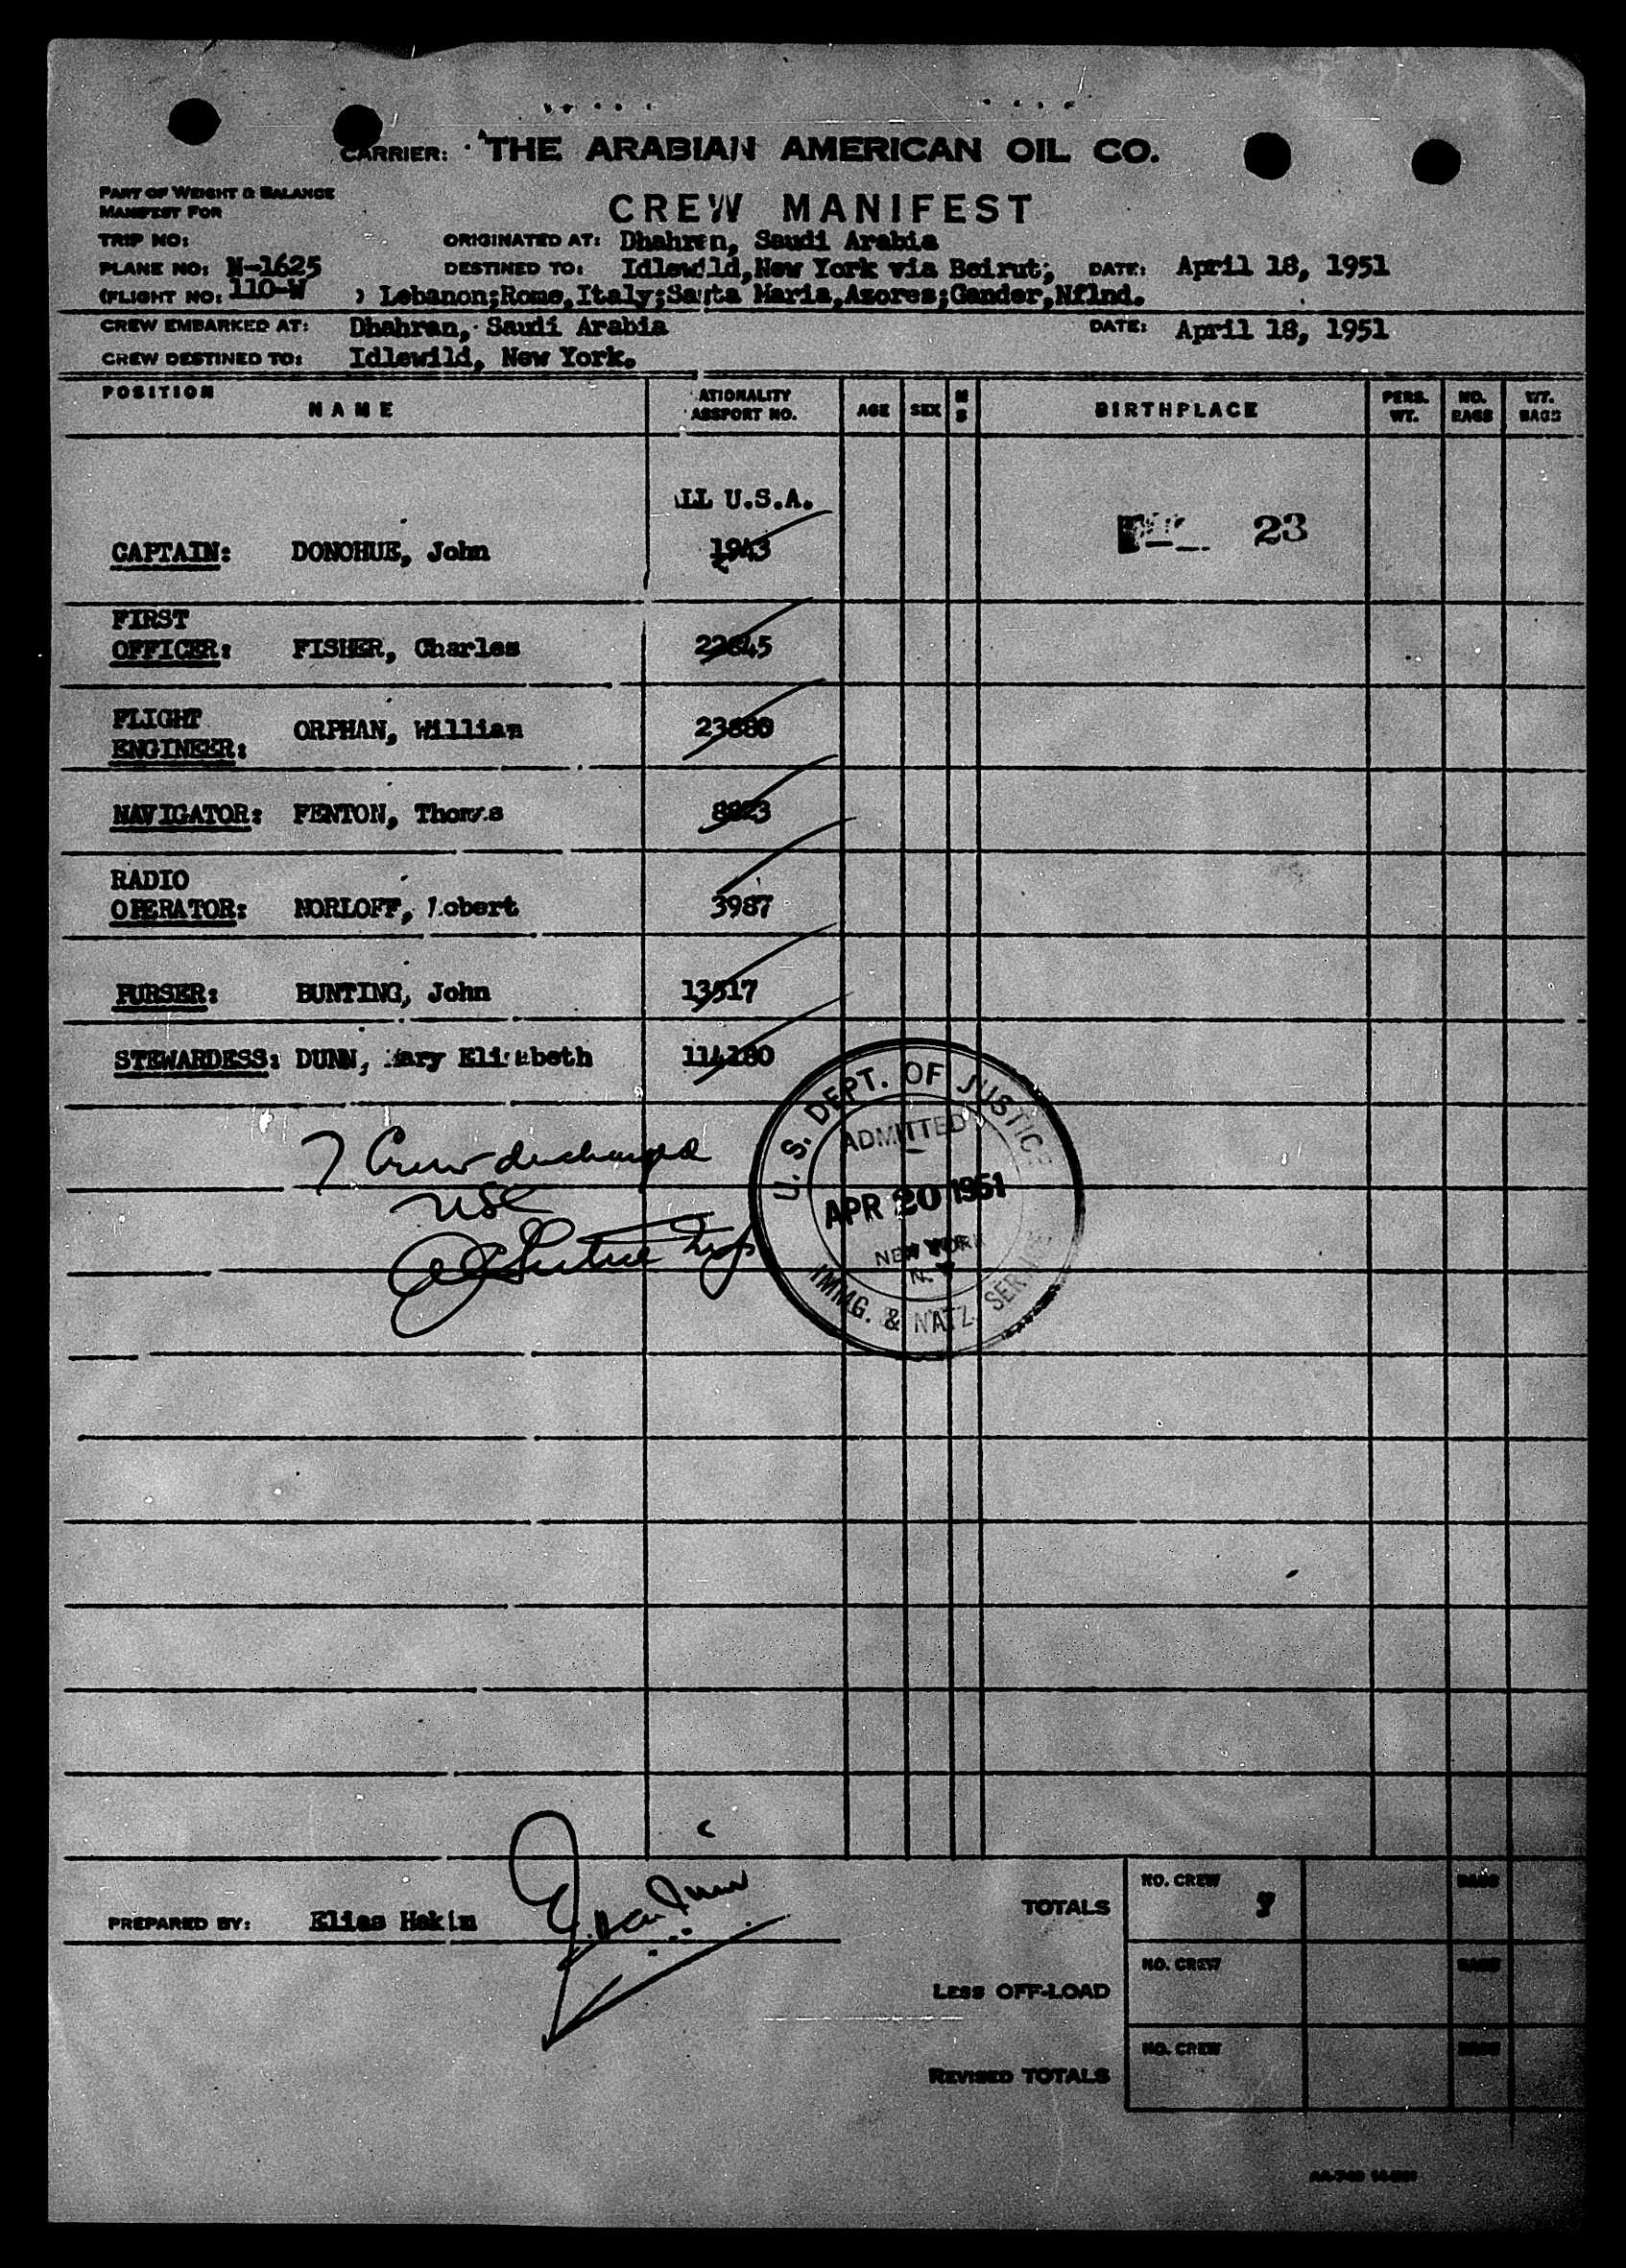 CARRIER: THE ARABIAN AMERICAN OIL CO.
PART OF WEIGHT & BALANCE
MANIFEST FOR
CREW MANIFEST
TRIP NO:
ORIGINATED AT: Dhahran, Saudi Arabia
PLANE NO: N-1625
DESTINED TO: Idlewild, New York via Beirut; DATE: April 18, 1951
(FLIGHT NO: 110-W ) Lebanon;Rome,Italy;Santa Maria,Azores;Gander,Nflnd.
CREW EMBARKED AT: Dhahran, Saudi Arabia DATE: April 18, 1951
CREW DESTINED TO: Idlewild, New York.
POSITION NAME ATIONALITY ASSPORT NO. AGE SEX M S BIRTHPLACE PERS. WT. NO. BAGS WT. BAGS
ALL U.S.A.
CAPTAIN: DONOHUE, John 1943
23
FIRST
OFFICER: FISHER, Charles 22645
FLIGHT
ENGINEER: ORPHAN, William 23880
NAVIGATOR: FENTON, Thomas
RADIO
OPERATOR: NORLOFF, Robert 3987
PURSER: BUNTING, John 13517
STEWARDESS: DUNN, Mary Elizabeth 114180
7 Crew discharged
USC
U.S. DEPT. OF JUSTICE
ADMITTED
APR 20 1951
NEW YORK
N.Y.
IMMG. & NATZ. SERVICE
PREPARED BY: Elias Hakim
TOTALS NO. CREW 7 BAGS
LESS OFF-LOAD NO. CREW BAGS
REVISED TOTALS NO. CREW BAGS